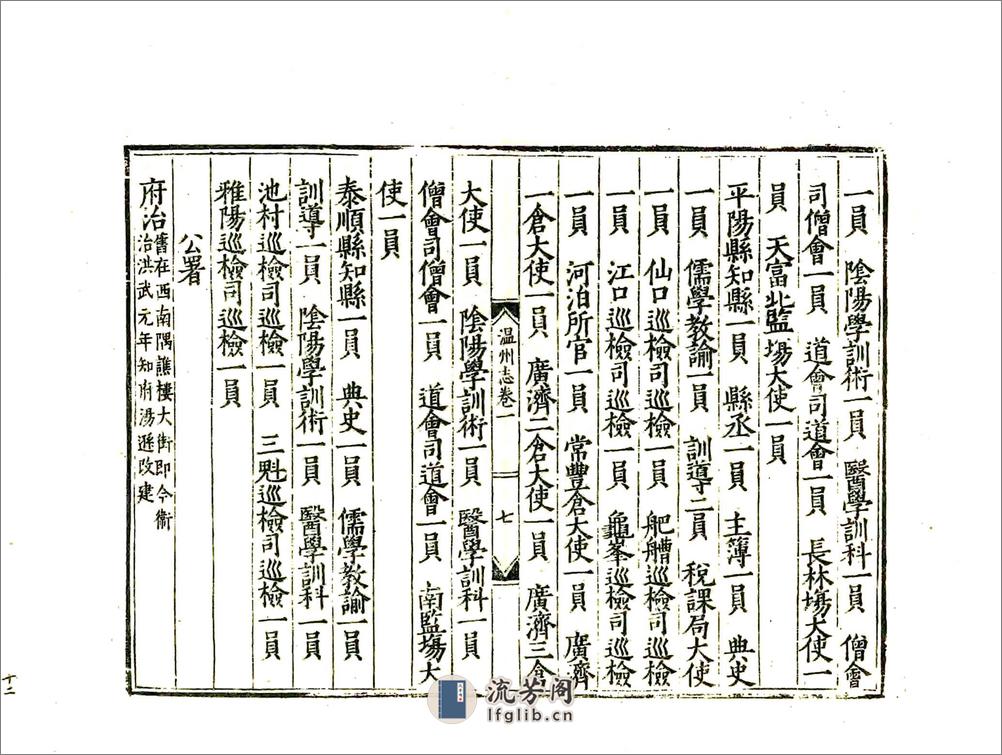 一員　陰陽學訓術一員　醫學訓科一員　僧會
司僧會一員　道會司道會一員　長林場大使一
員　天富北監場大使一員
平陽縣知縣一員　縣丞一員　主簿一員　典史
一員　儒學教諭一員　訓導二員　稅課局大使
一員　仙口巡檢司巡檢一員　舥艚巡檢司巡檢
一員　江口巡檢司巡檢一員　龜峯巡檢司巡檢
一員　河泊所官一員　常豐倉大使一員　廣濟
一倉大使一員　廣濟二倉大使一員　廣濟三倉
温州志卷一
七
大使一員　陰陽學訓術一員　醫學訓科一員
僧會司僧會一員　道會司道會一員　南監場大
使一員
泰順縣知縣一員　典史一員　儒學教諭一員
訓導一員　陰陽學訓術一員　醫學訓科一員
池村巡檢司巡檢一員　三魁巡檢司巡檢一員
雅陽巡檢司巡檢一員
公署
府治
舊在西南隅譙樓大街即今衞
治洪武元年知府湯遜改建
十二
流芳阁
lfglib.cn